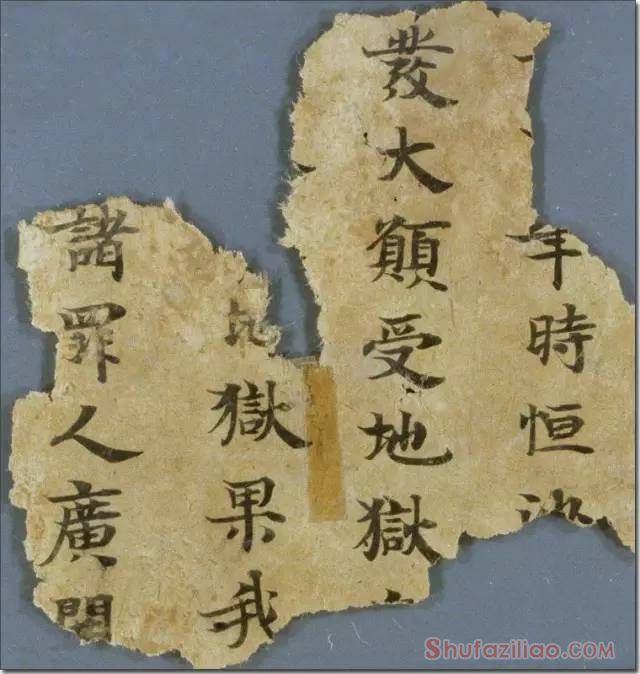 年時恒沙
發大願受地獄
地獄果我
諸罪人廣開
Shufaziliao.COM